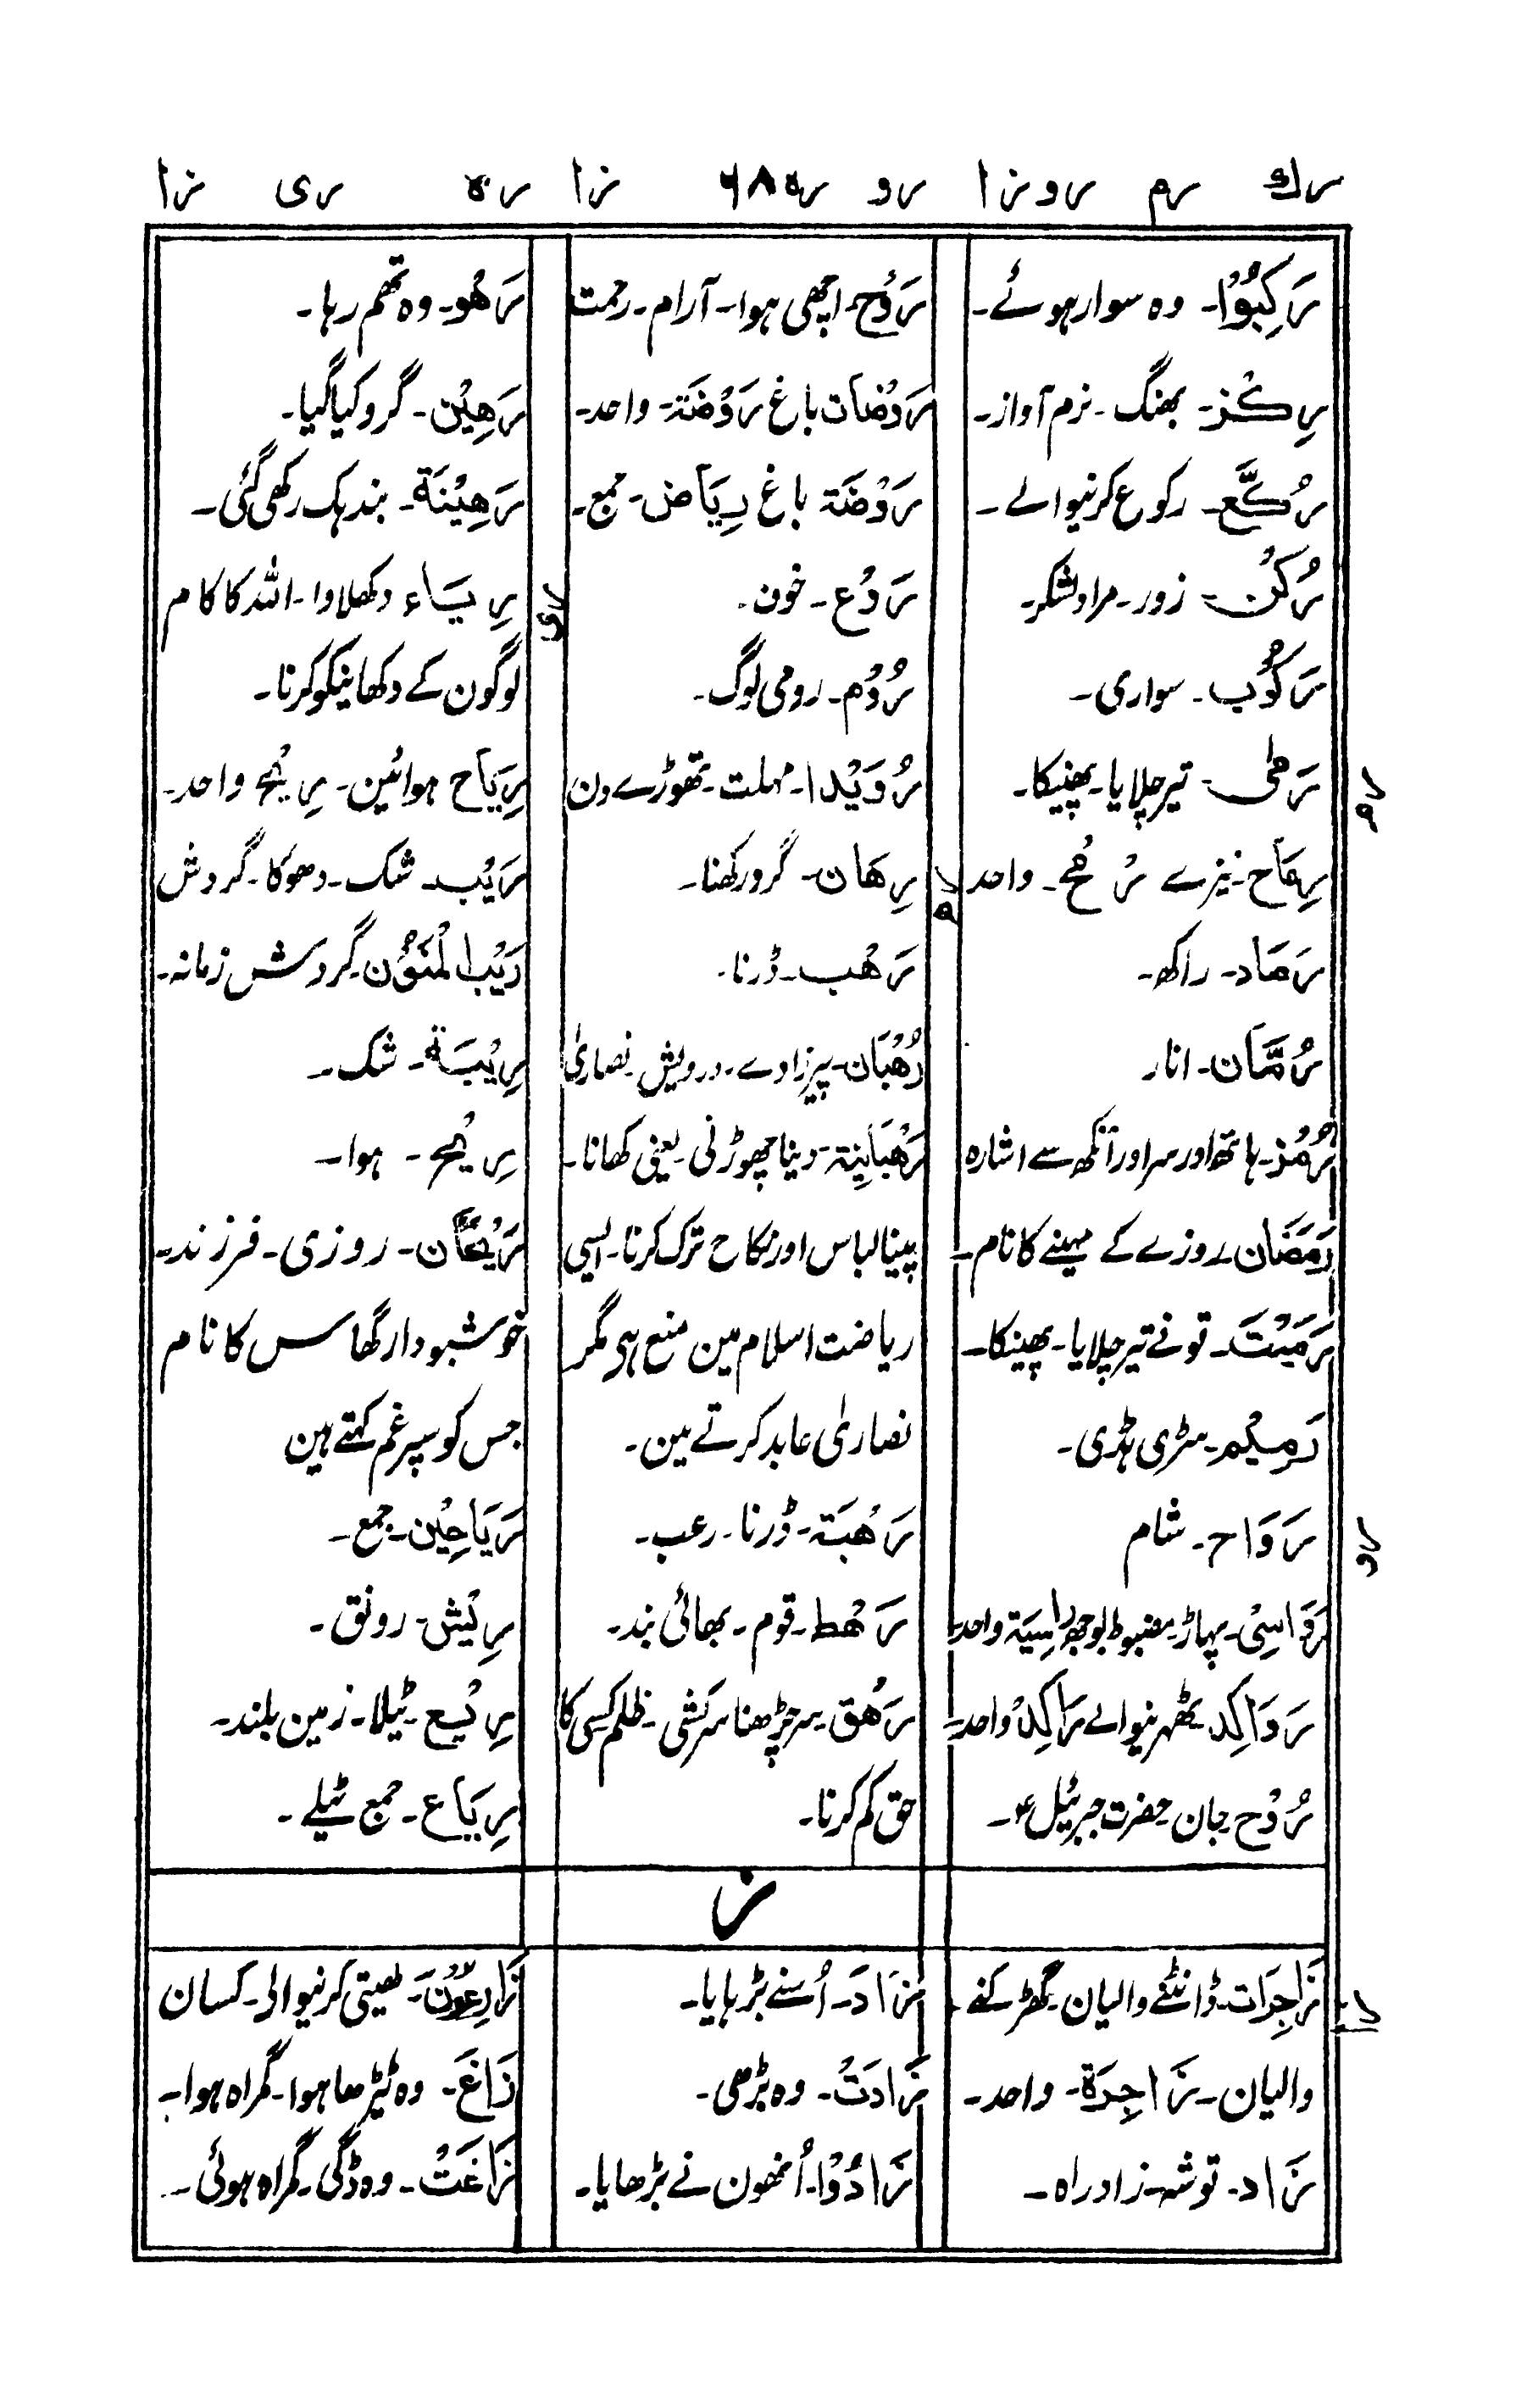 رك رم رو زا رو ره ۶۸ زا ره ری زا
رَكِبُوْا۔ وہ سوار ہوئے۔
رِكْز۔ بھنگ۔ نرم آواز۔
رُكَّع۔ رکوع کرنیوالے۔
رُكْن۔ زور۔ مراد لشکر۔
رَكُوْب۔ سواری۔
رَمٰی۔ تیر چلایا۔ پھنیکا۔
رِمَاح۔ نیزے رُمْح۔ واحد
رَمَاد۔ راکھ۔
رُمَّان۔ انار
رُمْز۔ ہاتھ اور سر اور آنکھ سے اشارہ
رَمَضَان۔ روزے کے مہینے کا نام۔
رَمَيْتَ۔ تونے تیر چلایا۔ پھینکا۔
رَمِيْم۔ سڑی ہڈی۔
رَوَاح۔ شام
رَوَاسِیْ۔ پہاڑ۔ مضبوط بوجھ رَاسِيَة واحد
رَوَاكِد۔ ٹھہرنیوالے رَاكِدْ واحد۔
رُوْح۔ جان۔ حضرت جبرئیل ۴۔
رم
رو
رَوْح۔ اچھی ہوا۔ آرام۔ رحمت
رَوْضَات باغ رَوْضَة۔ واحد۔
رَوْضَة باغ رِيَاض۔ جمع۔
رَوْع۔ خون۔
رُوْم۔ رومی لوگ۔
رُوَيْدا۔ مہلت۔ تھوڑے دن
رِهَان۔ گرو رکھنا۔
رَهْب۔ ڈرنا۔
رُهْبَان۔ پیرزادے۔ درویش نصاریٰ
رَهْبَانِيَة۔ دنیا چھوڑنی یعنی کھانا۔
پینا لباس اور نکاح ترک کرنا۔ ایسی
ریاضت اسلام مین منع ہی مگر
نصاریٰ عابد کرتے ہین۔
رَهْبَة۔ ڈرنا۔ رعب۔
رَهْط۔ قوم۔ بھائی بند۔
رَهْق۔ سر چڑھنا سرکشی۔ ظلم کسی کا
حق کم کرنا۔
ره
رَهْو۔ وہ تھم رہا۔
رَهِيْن۔ گرو کیا گیا۔
رَهِيْنَة۔ بندہک رکھی گئی۔
رِيَاء دکھلاوا۔ اللہ کا کام
لوگون کے دکھانیکو کرنا۔
رِيَاح ہوائین۔ رِيْح واحد۔
رَيْب۔ شک۔ دھوکا۔ گردش
رَيْبَ الْمَنُوْن۔ گردش زمانہ۔
رِيْبَة۔ شک۔
رِيْح۔ ہوا۔
رَيْحَان۔ روزی۔ فرزند۔
خوشبودار گھاس کا نام
جس کو سپرغم کہتے ہین
رَيَاحِيْن۔ جمع۔
رِيْش۔ رونق۔
رِيْع۔ ٹیلا۔ زمین بلند۔
رِيَاع۔ جمع ٹیلے۔
ری
ز
زَاجِرَات۔ ڈانٹنے والیان۔ گھڑکنے
والیان۔ زَاجِرَة۔ واحد۔
زَاد۔ توشہ۔ زاد راہ۔
زا
زَادَ۔ اُسنے بڑہایا۔
زَادَتْ۔ وہ بڑھی۔
زَادُوْا۔ اُنھون نے بڑھایا۔
زَارِعُوْنَ۔ کھیتی کرنیوالی۔ کسان
زَاغَ۔ وہ ٹیڑھا ہوا۔ گمراہ ہوا۔
زَاغَتْ۔ وہ ڈگی۔ گمراہ ہوئی۔